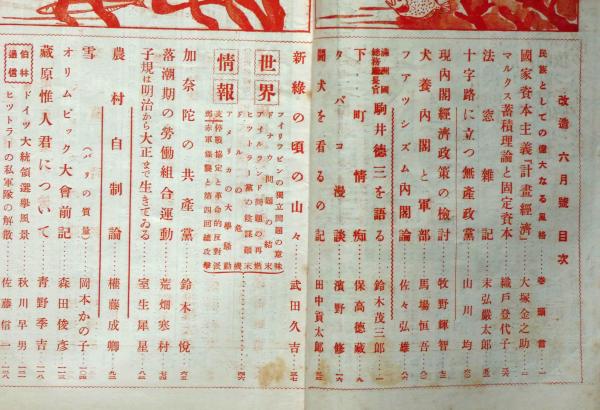 改造 六月號 目次
民族としての偉大なる風格 卷頭言
國家資本主義「計畫經濟」 大塚金之助
マルクス蓄積理論と固定資本 織戸登代子
法窓雜記 末弘嚴太郎
十字路に立つ無產政黨 山川均
現內閣經濟政策の檢討 牧野輝智
犬養內閣と軍部 馬場恒吾
フアツシズム內閣論 佐々弘雄
滿洲國總務廳長官 駒井德三を語る 鈴木茂三郎
下町情痴 保高德藏
タバコ漫談 濱野修
鬪犬を看るの記 田中貢太郎
新綠の頃の山々 武田久吉
世界情報
フイリツピンの獨立問題の意味
ドナウ問題の結末
アイルランド問題の再燃
ヒツトラー黨の陰謀顚末
アメリカの大學騷動
支停戰協定と革命的反對派
鄕赤軍襲と第四回總攻擊
加奈陀の共產黨 鈴木悅
落潮期の勞働組合運動 荒畑寒村
子規は明治から大正まで生きてゐる 室生犀星
農村自制論 權藤成卿
雪(パリの質量) 岡本かの子
オリムピツク大會前記 森田俊彥
藏原惟人君について 靑野季吉
伯林通信 ドイツ大統領選擧風景 秋川早男
ヒツトラーの私軍隊の解散 佐藤信一